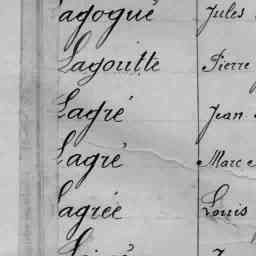 Lagogué Jules
Lagoutte Pierre
Lagré Jean
Lagré Marc
Lagrée Louis